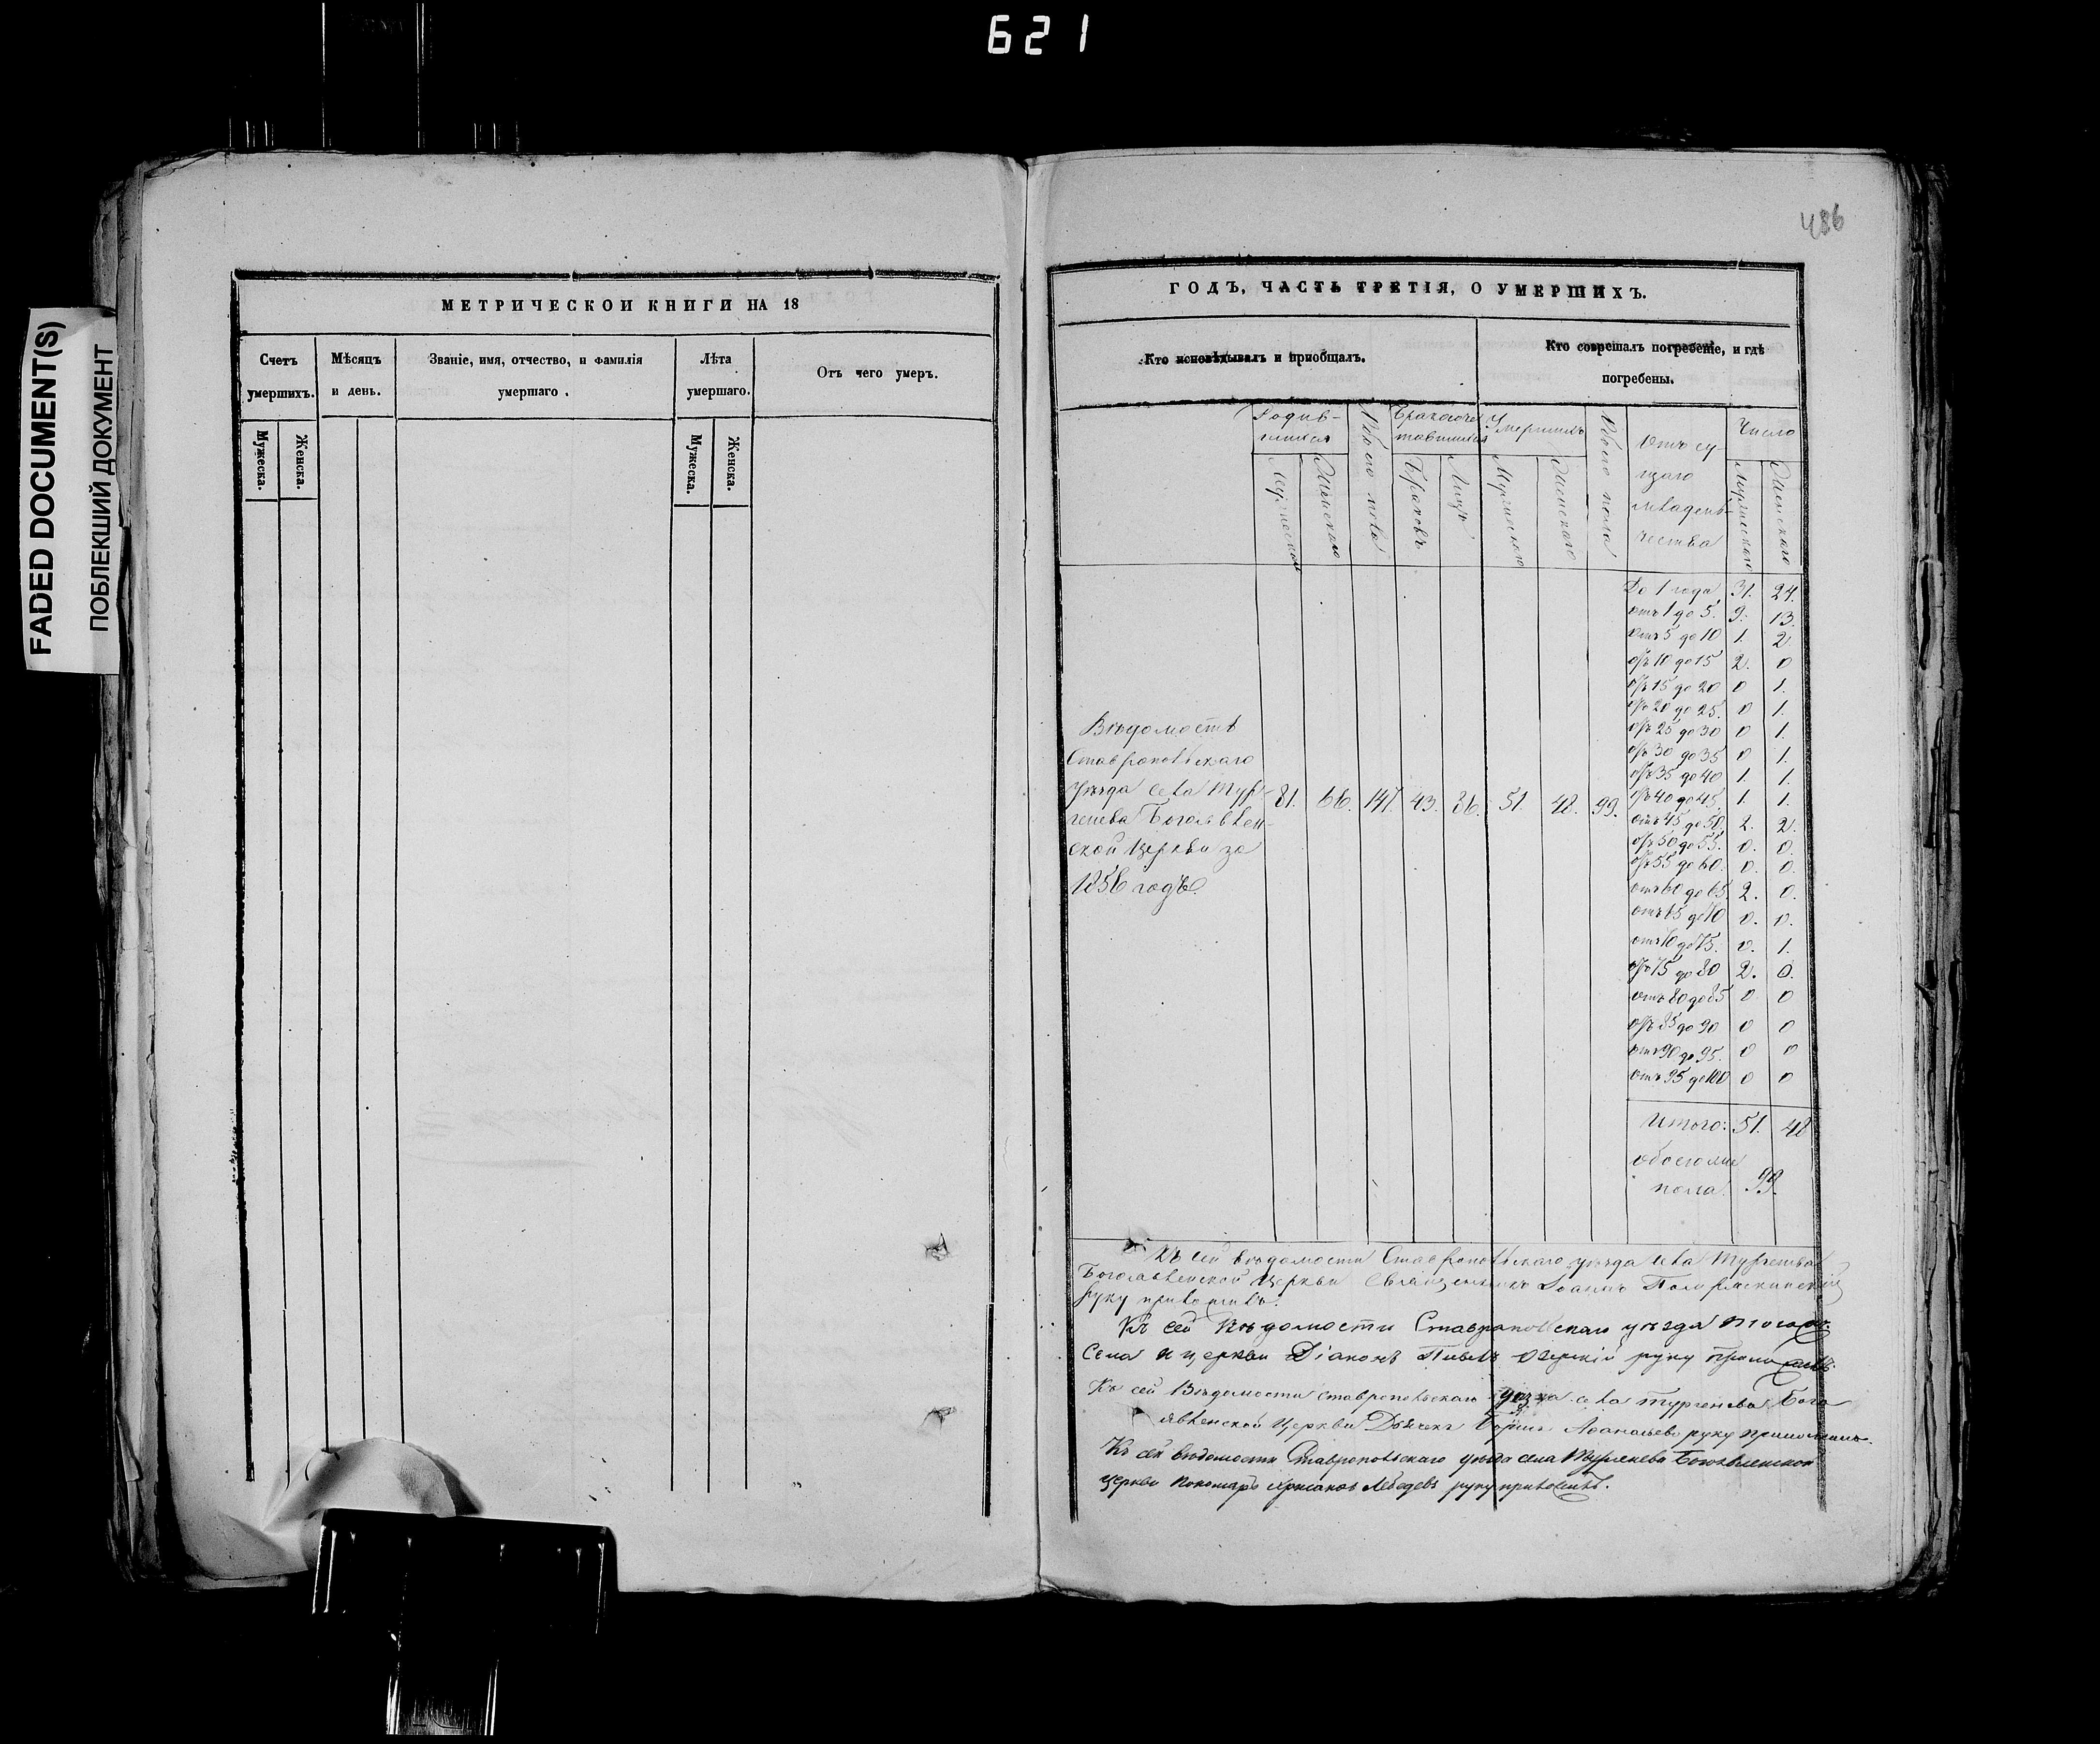 621
486
FADED DOCUMENT(S)
ПОБЛЕКШИЙ ДОКУМЕНТ
МЕТРИЧЕСКОЙ КНИГИ НА 18
Счетъ
умершихъ.
Мужеска.
Женска.
Мѣсяцъ
и день.
Званіе, имя, отчество, и фамилія
умершаго.
Лѣта
умершаго.
Мужеска.
Женска.
Отъ чего умеръ.
ГОДЪ, ЧАСТЬ ТРЕТІЯ, О УМЕРШИХЪ.
Кто исповѣдывалъ и пріобщалъ.
Кто совершалъ погребеніе, и гдѣ
погребены.
Родив-
шихся
Мужескаго
Женскаго
Обоего пола
Бракосоче
тавшихся
Браковъ
Лицъ
Умершихъ
Мужескаго
Женскаго
Обоего пола
Отъ су
щаго
младен-
чества
Число
Мужескаго
Женскаго
Вѣдомость
Ставропольскаго
уѣзда села Тур
генева Богоявлен-
ской Церкви за
1856 годъ.
81. 66. 147. 43. 86. 51. 48. 99.
До 1 года 31. 24.
отъ 1 до 5. 9. 13.
отъ 5 до 10 1. 2
отъ 10 до 15 2. 0
отъ 15 до 20 0 1.
отъ 20 до 25. 0 1.
отъ 25 до 30 0 1.
отъ 30 до 35 0 1.
отъ 35 до 40 1. 1.
отъ 40 до 45. 1. 1.
отъ 45 до 50. 2. 2.
отъ 50 до 55. 0. 0.
отъ 55 до 60. 0. 0.
отъ 60 до 65. 2. 0.
отъ 65 до 70 0. 0.
отъ 70 до 75. 0. 1.
отъ 75 до 80 2. 0.
отъ 80 до 85 0 0
отъ 85 до 90 0 0
отъ 90 до 95. 0 0
отъ 95 до 100 0 0
Итого: 51. 48
обоего
пола. 99.
Къ сей вѣдомости Ставропольскаго уѣзда села Тургенева
Богоявленской Церкви Священникъ Іоаннъ
руку приложилъ.
Къ сей Вѣдомости Ставропольскаго уѣзда тогожъ
Села и церкви Діаконъ Павелъ Озерскій руку приложилъ.
Къ сей Вѣдомости Ставропольскаго уѣзда села Тургенева Бого
явленской Церкви Дьячекъ руку приложилъ.
Къ сей вѣдомости Ставропольскаго уѣзда села Тургенева Богоявленской
церкви пономарь Лебедевъ руку приложилъ.